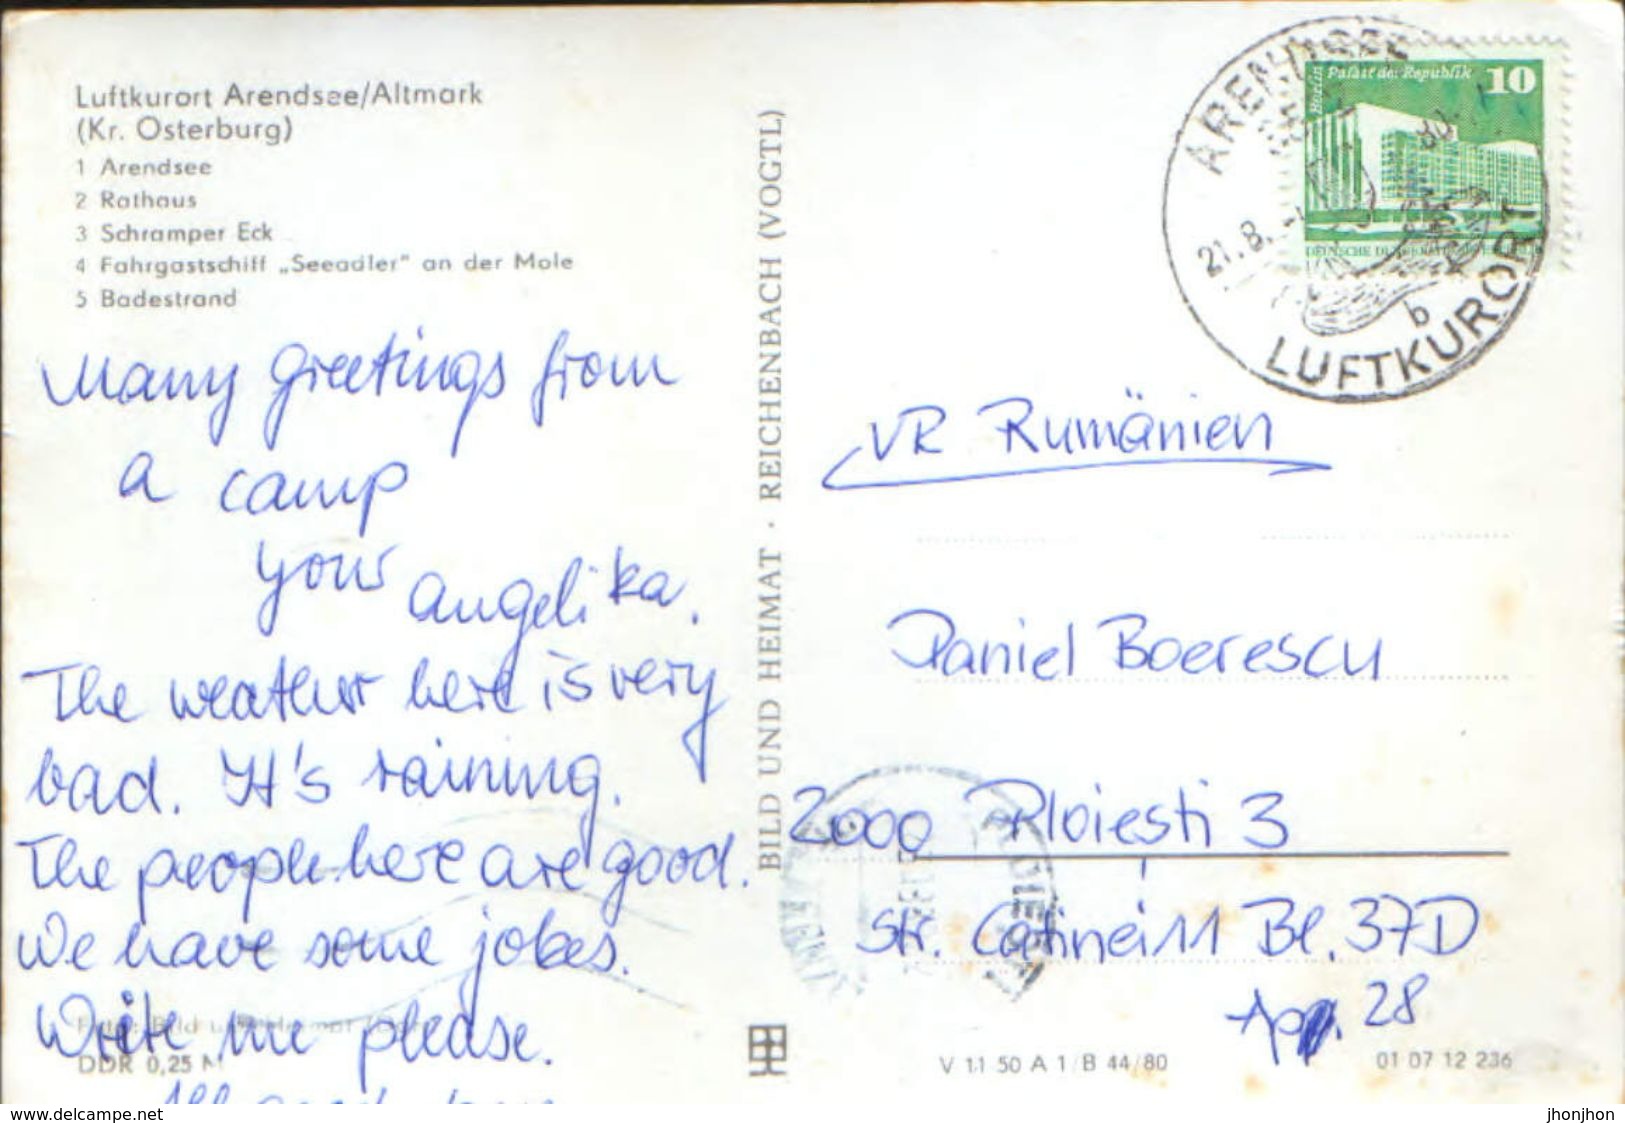 Luftkurort Arendsee/Altmark
(Kr. Osterburg)
1 Arendsee
2 Rathaus
3 Schramper Eck
4 Fahrgastschiff „Seeadler" an der Mole
5 Badestrand
Many greetings from
a camp
your Angelika.
The weather here is very
bad. It's raining.
The people here are good.
We have some jokes.
Write me please.
All good
DDR 0,25 M
BILD UND HEIMAT · REICHENBACH (VOGTL)
Berlin Palast der Republik 10
ARENDSEE
21.8.
b
LUFTKURORT
VR Rumänien
Daniel Boerescu
2000 Ploiesti 3
Str. Catinei 11 Bl. 37D
App. 28
V 11 50 A 1/B 44/80
01 07 12 236
www.delcampe.net
jhonjhon